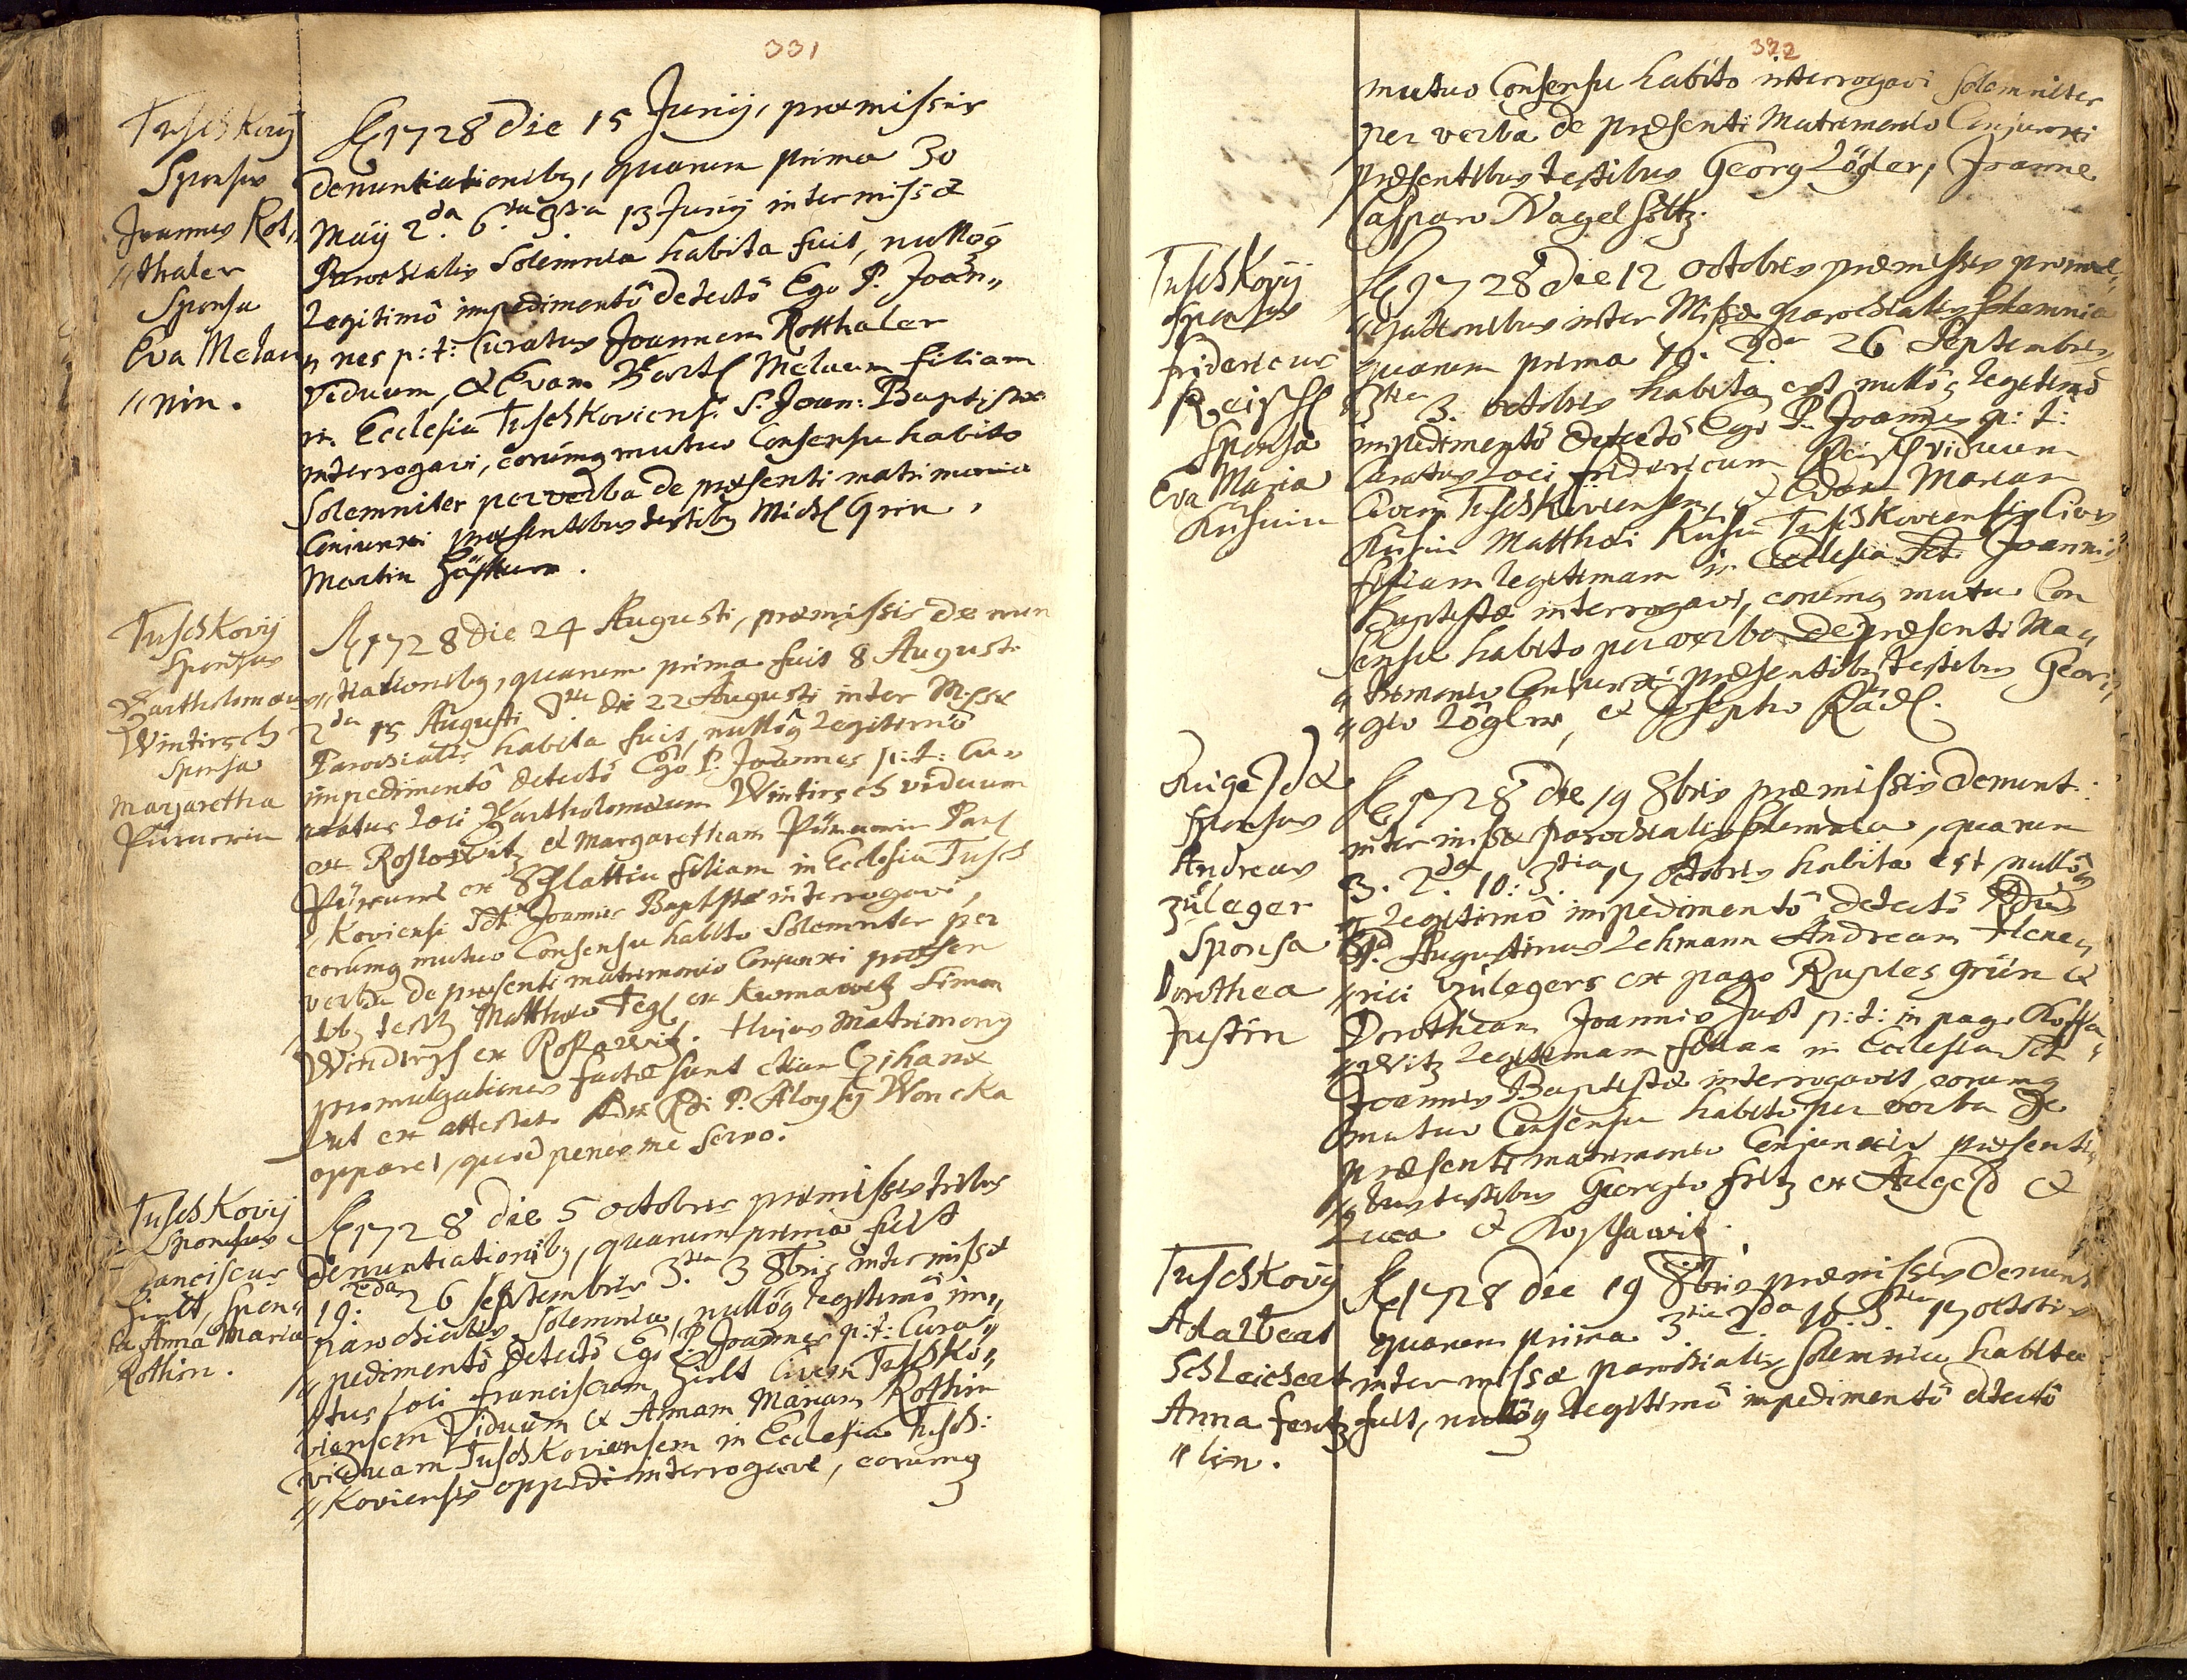 331
Tuschkovij
Sponsus
Joannes Rot„
„thaler
Sponsa
Eva Melau
„nin.
A 1728 die 15 Junij, præmissis
denuntiationibq, quarum prima 30
Maij 2da. 6. 3tia 13 Junij inter missæ
Parochialis Solemnia habita fuit, nullôq
Legitimô impedimentô detectô Ego P. Joan„
„nes p: t: Curatus Joannem Rotthaler
viduum, & Evam Bartl Melaun filiam
in Ecclesia Tuschkoviensi S. Joan: Baptistæ
interrogavi, eorumq mutuo Consensu habito
Solemniter per verba de præsenti matrimonio
Coniunxi præsentibus testibq Michl Grin,
Martin
Tuschkovij
Sponsus
Bartholomæus
Wintirsch
Sponsa
Margaretha
A 1728 die 24 Augusti, præmissis denun
„tiationibq, quarum prima fuit 8 Augusti
2da 15 Augusti 3tia die 22 Augusti inter Missæ
Parochialis habita fuit, nullôq Legitimô
impedimentô detectô Ego P. Joannes p: t: Cu„
ratus Loci Bartholomæum Wintirsch viduum
ex & Margaretham Paul
ex Schlattin filiam in Ecclesia Tusch
„Koviensi Sti Joannis Baptistæ interrogavi,
eorumq mutuo Consensu habito Solemniter per
verba de præsenti matrimonio Conjunxi præsen
tibq testibq Matthæo Tegl ex Simon
ex. Hujus Matrimonij
promulgationes factæ sunt etiam
ut ex attestato Adm Rdi P. Aloysij Woncka
apparet, quod penes me servo.
Tuschkovij
Sponsus
Franciscus
Hirlt, Spon„
sa Anna Maria
Rothin.
A 1728 die 5 octobris præmissis tribus
Denuntiationibq, quarum prima fuit
19. 2da 26 septembris 3tia 3 8bris inter missæ
parochialis Solemnia, nullôq legitimô im„
„pedimentô detectô Ego P. Joannes p: t: Cura„
„tus loci Franciscum Hirlt Civem Tuschko„
viensem Viduum & Annam Mariam Rothin
viduam Tuschkoviensem in Ecclesia Tusch:
„Koviensis oppidi interrogavi, eorumq
332
mutuo Consensu habito interrogavi Solemniter
per verba de præsenti Matrimonio Conjunxi
præsentibus testibus Georg Lögler, Joanne
Casparo Nagelsöltz.
Tuschkovij
Sponsus
fridericus
Reischl
Sponsa
Eva Maria
A 1728 die 12 octobris præmissis promul„
„gationibus inter Missæ parochialis Solemnia
quarum prima 19. 2da 26 Septembris
3tia 3. octobris habita est, nullôq legitimô
impedimentô detectô Ego P. Joannes p: t:
Curatus Loci fridericum Reischl viduum
Civem Tuschkoviensem, & Evam Mariam
Matthæi Tuschkoviensis Civis
filiam legitimam in Ecclesia Sti Joannis
Baptistæ interrogavi, eorumq mutuo Con
sensu habito per verba de præsenti Ma„
„trimonio Conjunxi præsentibq testibus Geor„
„gio Lögler, & Josepho Rädl.
Auigezdæ
Sponsus
Andreas
Zuleger
Sponsa
Dorothea
Justin
A 1728 die 19 8bris præmissis denunt:
inter missæ parochialis Solemnia, quarum
3. 2da 10: 3tia 17 octobris habita est nullôq
legitimô impedimentô detectô Rdus
P. Augustinus Lehmann Andream Hen„
„rici Zulegers ex pago Ruplesgrün &
Dorotheam Joannis Just p: t: in pago
„witz legitimam filiam in Ecclesia Sti
Joannis Baptistæ interrogavit, eorumq
mutuo Consensu habito per verba de
præsenti matrimonio Conjunxit præsenti„
„bus testibus Georgio Fritz ex Augezd &
Luca
Tuschkovij
Adalbert
Schleichert
Anna Fentz
„lin.
A 1728 die 19 8bris præmissis Denunt
quarum prima 3tia 2da 10. 3tia 17 octobris
inter missæ parochialis Solemnia habita
fuit, nullôq legitimô impedimentô detectô